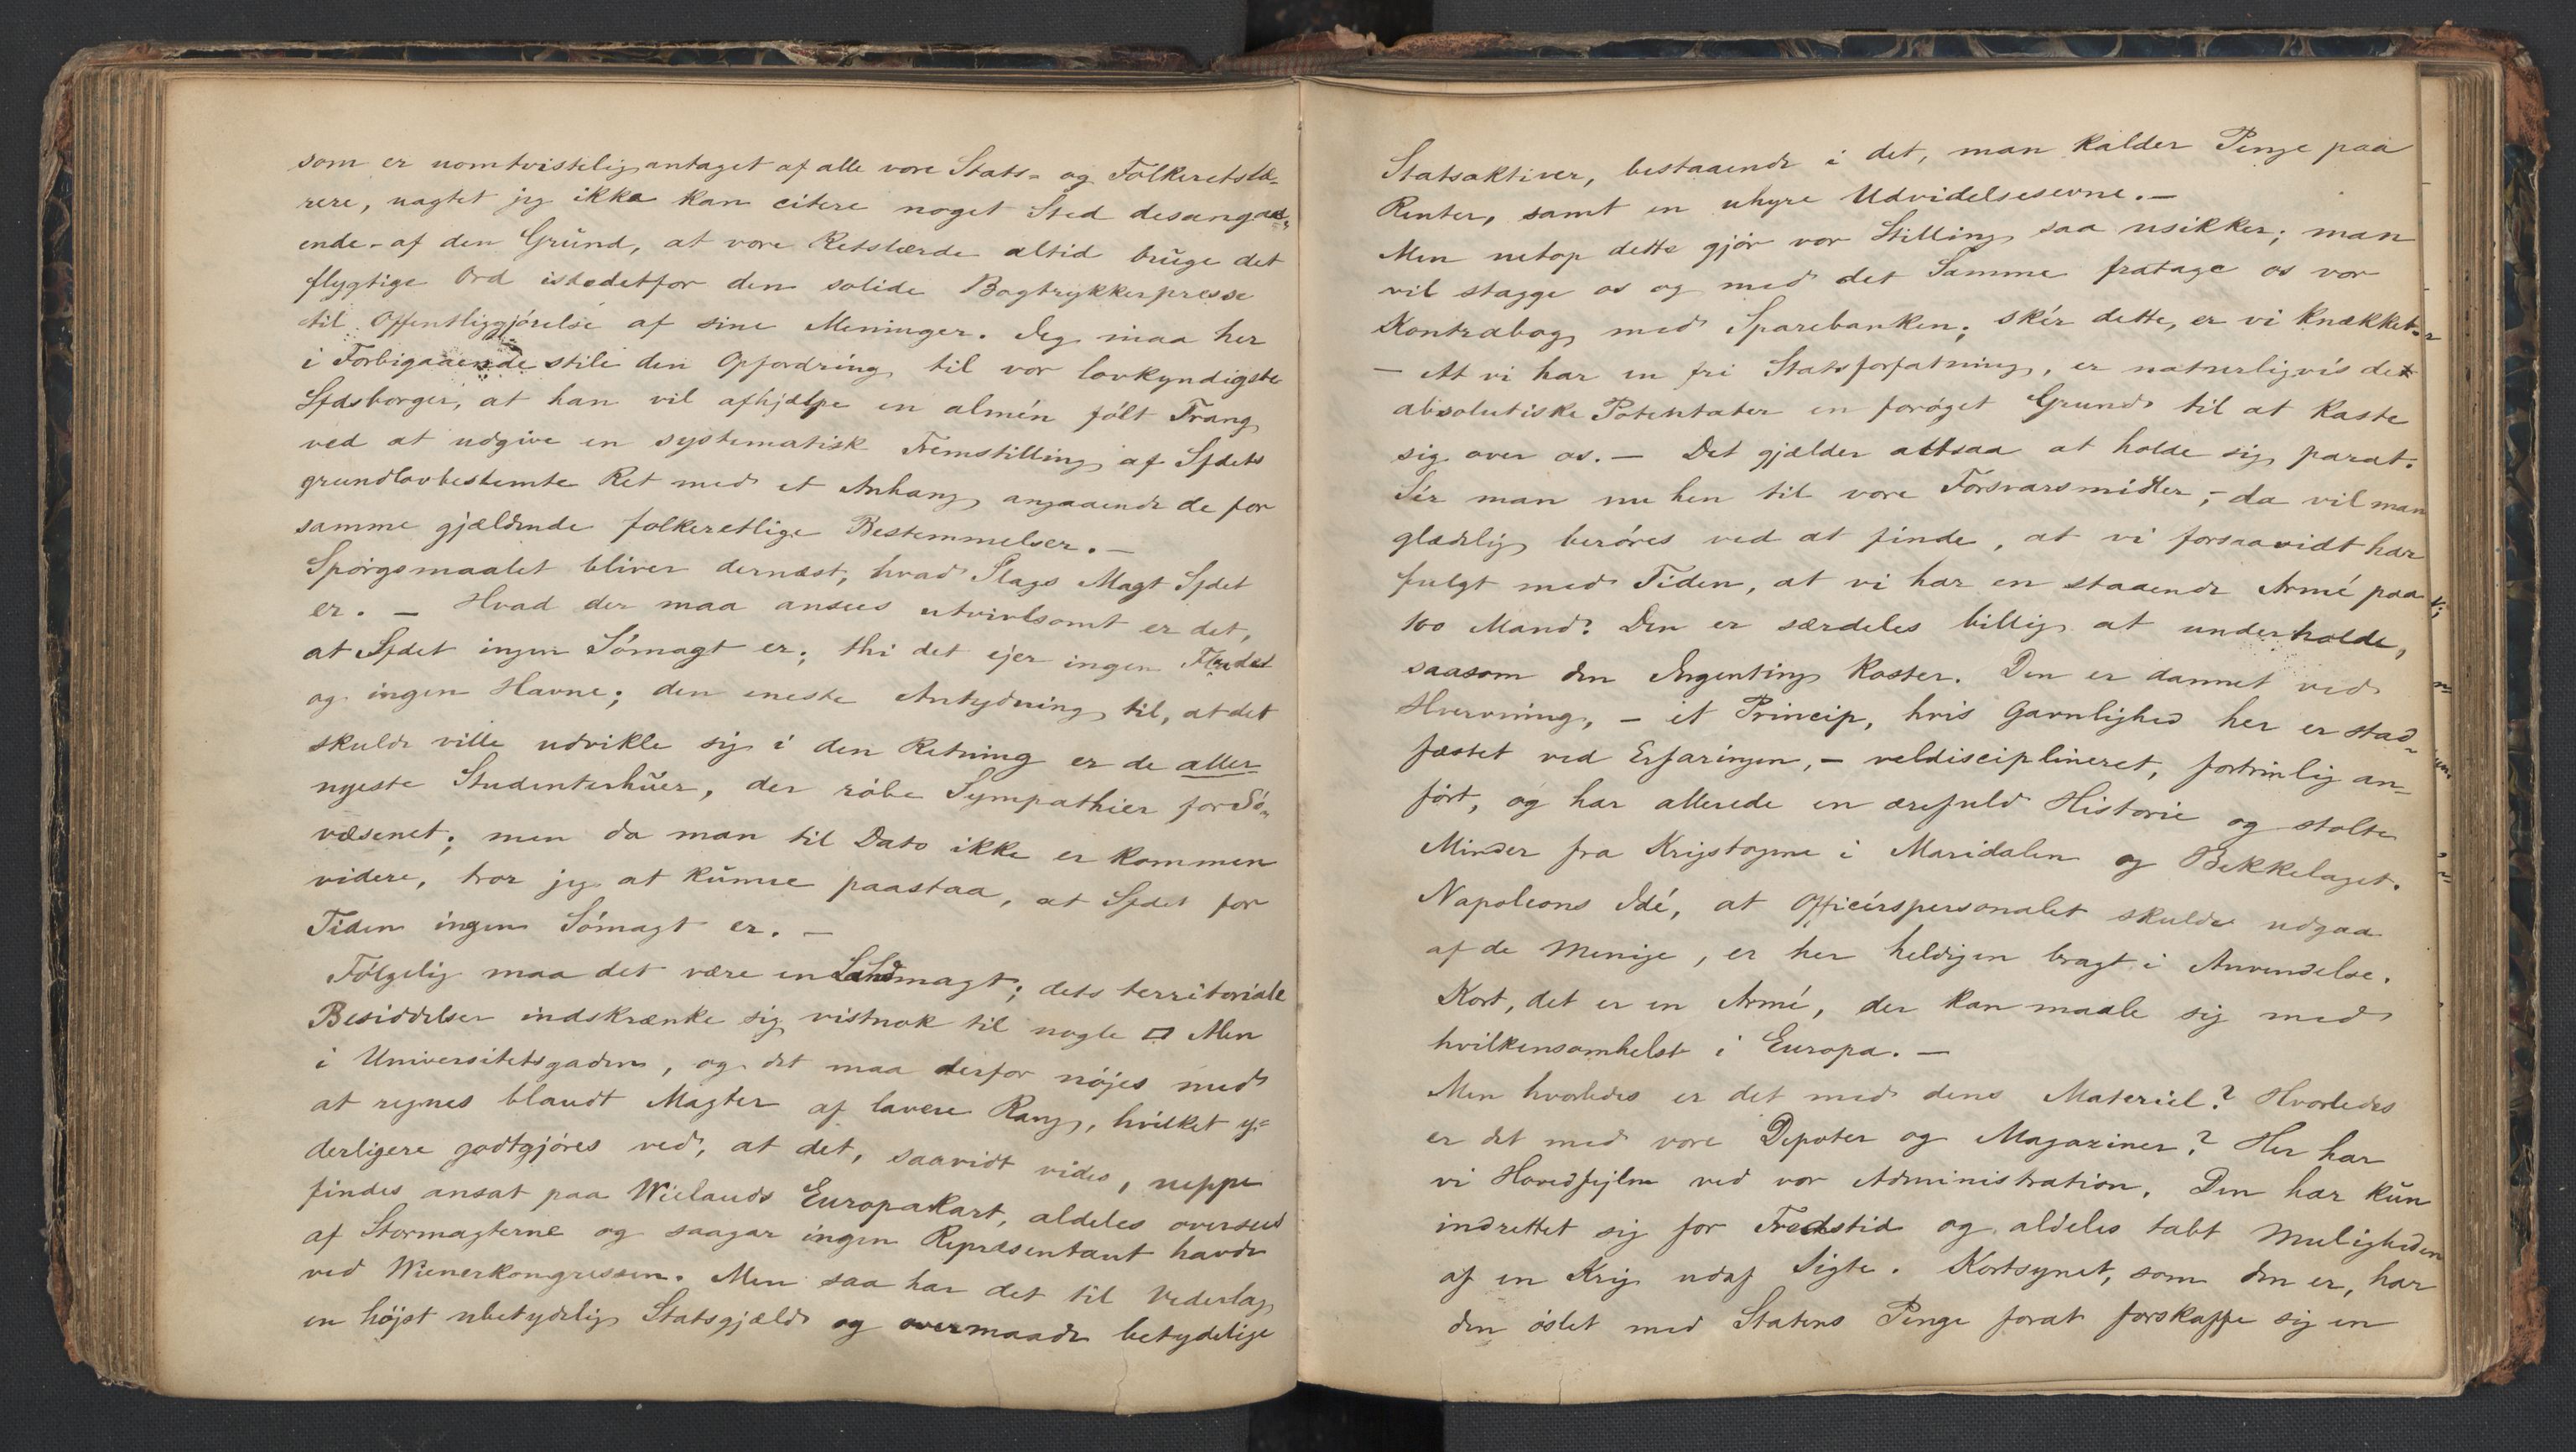 som er uomtvistelig antaget af alle vore Stats- og Folkeretslæ-
rere, uagtet jeg ikke kan citere noget Sted desangaa-
ende - af den Grund, at vore Retslærde altid bruge det
flygtige Ord istedetfor den solide Bogtrykkerpresse
til Offentliggjórelse af sine Meninger. Jeg maa her
i Forbigaaende stile den Opfordring til vor lovkyndigste
Sfdsborger, at han vil afhjælpe en almén fólt Trang
ved at udgive en systematisk Fremstilling af Sfdets
grundlovbestemte Ret med et Anhang angaaende de for
samme gjældende folkeretlige Bestemmelser. —
Spórgsmaalet bliver dernæst, hvad Slags Magt Sfdet
er. — Hvad der maa ansees utvivlsomt er det,
at Sfdet ingen Sómagt er; thi det ejer ingen Flaade
og ingen Havne; den eneste Antydning til, at det
skulde ville udvikle sig i den Retning er de aller-
nyeste Studenterhuer, der róbe Sympathier for Só-
væsenet; men da man til Dato ikke er kommen
videre, tror jeg at kunne paastaa, at Sfdet for
Tiden ingen Sómagt er. —
Fólgelig maa det være en Landmagt; dets territoriale
Besiddelser indskrænke sig vistnok til nogle □ Alen
i Universitetsgaden, og det maa derfor nójes med
at regnes blandt Magter af lavere Rang, hvilket y-
derligere godtgjóres ved, at det, saavidt vides, neppe
findes ansat paa Wielands Europakart, aldeles overseed
af Stormagterne og saagar ingen Repræsentant havde
ved Wienerkongressen. Men saa har det til Vederlag
en hójst ubetydelig Statsgjæld og overmaade betydelige
Statsaktiver, bestaaende i det, man kalder Penge paa
Renter, samt en uhyre Udvidelsesevne. —
Men netop dette gjór vor Stilling saa usikker; man
vil stagge os og med det Samme fratage os vor
Kontrabog med Sparebanken; skér dette, er vi knækket.
— At vi har en fri Statsforfatning, er naturligvis det
absolutiske Potentater en foróget Grund til at kaste
sig over os. — Det gjælder altsaa at holde sig parat.
Sér man nu hen til vore Forsvarsmidler, - da vil man
glædelig beróres ved at finde, at vi forsaavidt har
fulgt med Tiden, at vi har en staaende Armé paa
100 Mand. Den er særdeles billig at underholde,
saasom den Ingenting koster. Den er dannet ved
Hverving, - et Princip, hvis Gavnlighed her er stad-
fæstet ved Erfaringen, - veldisciplineret, fortrinlig an-
fórt, og har allerede en ærefuld Historie og stolte
Minder fra Krigstogene i Maridalen og Bekkelaget.
Napoleons Idé, at Officérspersonalet skulde udgaa
af de Menige, er her heldigen bragt i Anvendelse.
Kort, det er en Armé, der kan maale sig med
hvilkensomhelst i Europa. —
Men hvorledes er det med dens Materiel? Hvorledes
er det med vore Depoter og Magaziner? Her har
vi Hovedfejlen ved vor Administration. Den har kun
indrettet sig for Fredstid og aldeles tabt Muligheden
af en Krig udaf Sigte. Kortsynet, som den er, har
den ódslet med Statens Penge forat forskaffe sig en